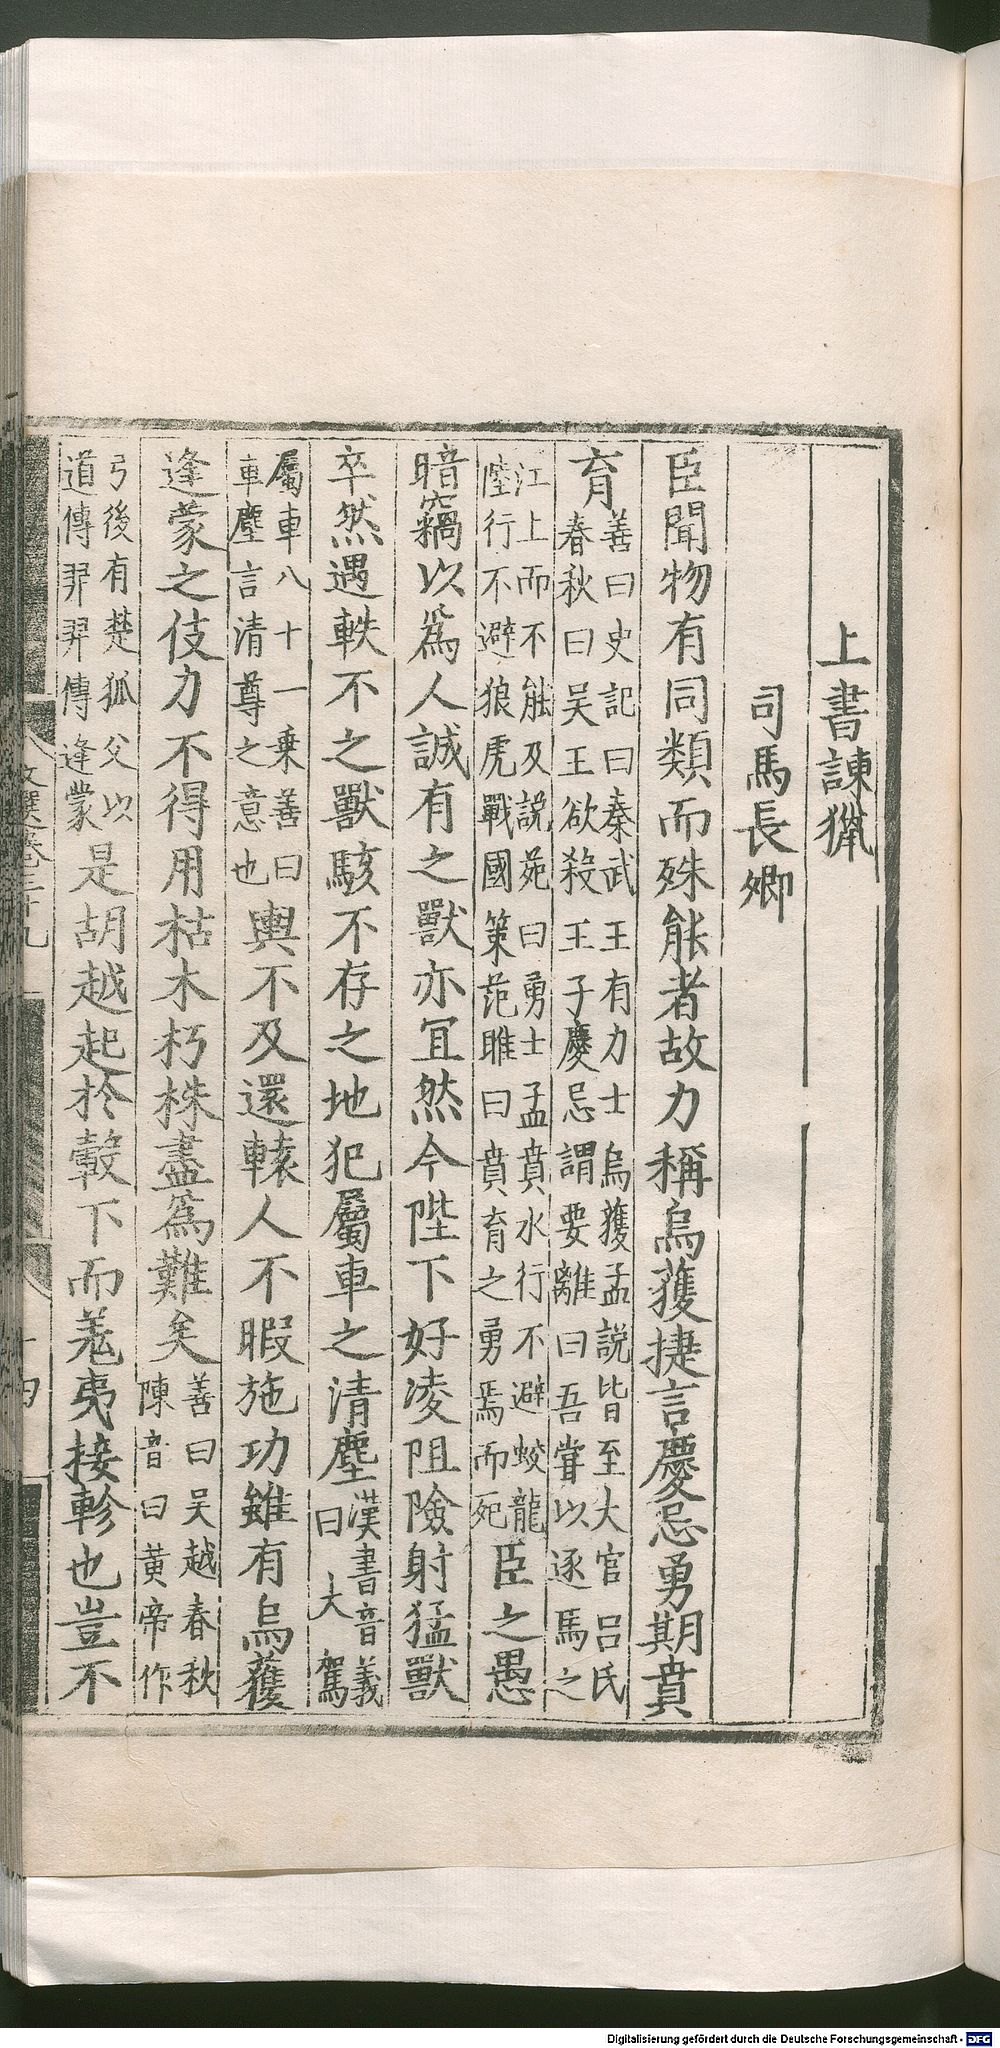 上書諫獵
司馬長卿
臣聞物有同類而殊能者故力稱烏獲捷言慶忌勇期賁
育善曰史記曰秦武王有力士烏獲孟説皆至大官呂氏春秋曰吴王欲殺王子慶忌謂要離曰吾嘗以逐馬之
江上而不能及説苑曰勇士孟賁水行不避蛟龍陸行不避狼虎戰國策范雎曰賁育之勇焉而死臣之愚
暗竊以爲人誠有之獸亦冝然今陛下好凌阻險射猛獸
卒然遇軼不之獸駭不存之地犯屬車之清塵漢書音義曰大駕
屬車八十一乗善曰車塵言清尊之意也輿不及還轅人不暇施功雖有烏獲
逢蒙之伎力不得用枯木朽株盡爲難矣善曰吴越春秋陳音曰黄帝作
弓後有楚狐父以道傳羿羿傳逢蒙是胡越起於轂下而羌夷接軫也豈不
文選卷三十九
十四
Digitalisierung gefördert durch die Deutsche Forschungsgemeinschaft - DFG